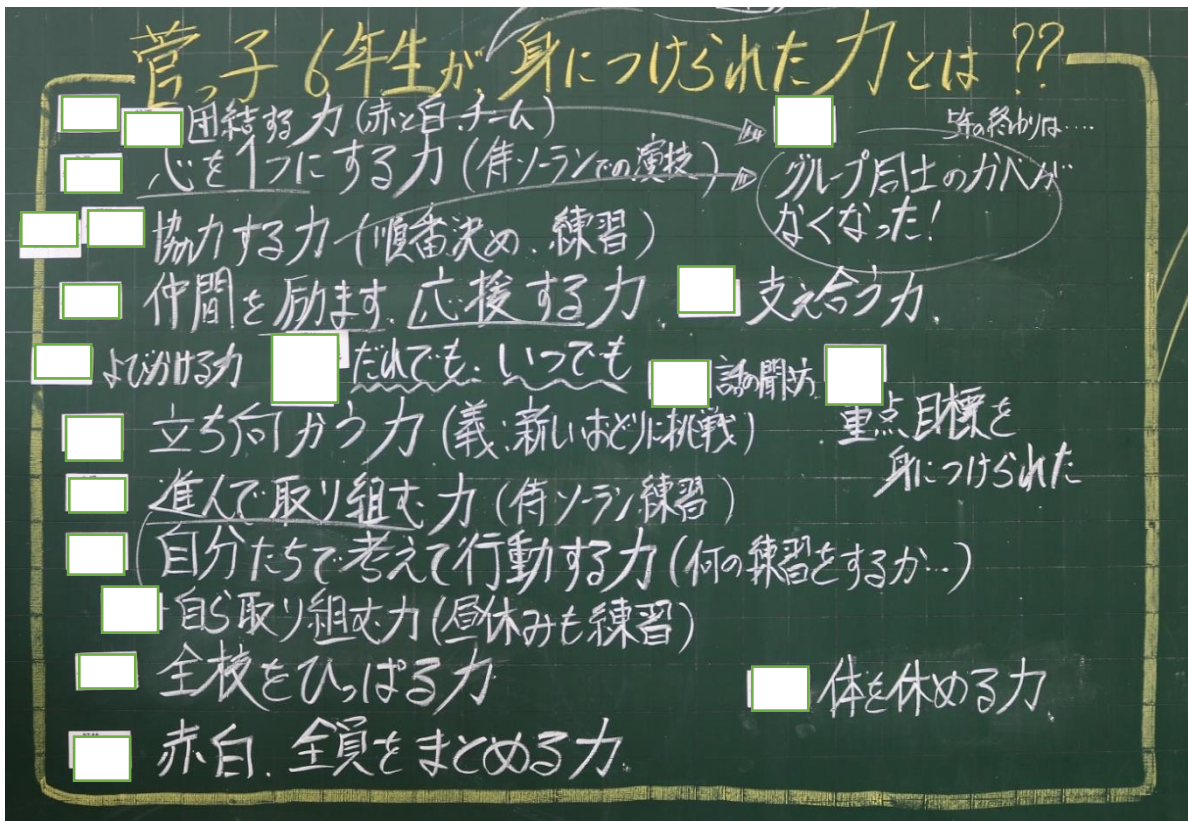 菅っ子 6年生が身につけられた力とは??
団結する力(赤と白、チーム)
年の終わりは……
心を1つにする力(侍ソーランでの演技)
グループ同士のカベが
なくなった!
協力する力(順番決め、練習)
仲間を励ます、応援する力
支え合う力
よびかける力
だれでも、いつでも
話の聞き方
立ち向かう力(義:新しいおどりに挑戦)
重点目標を
身につけられた
進んで取り組む力(侍ソーラン練習)
自分たちで考えて行動する力(何の練習をするか…)
自ら取り組む力(昼休みも練習)
全校をひっぱる力
体を休める力
赤白、全員をまとめる力